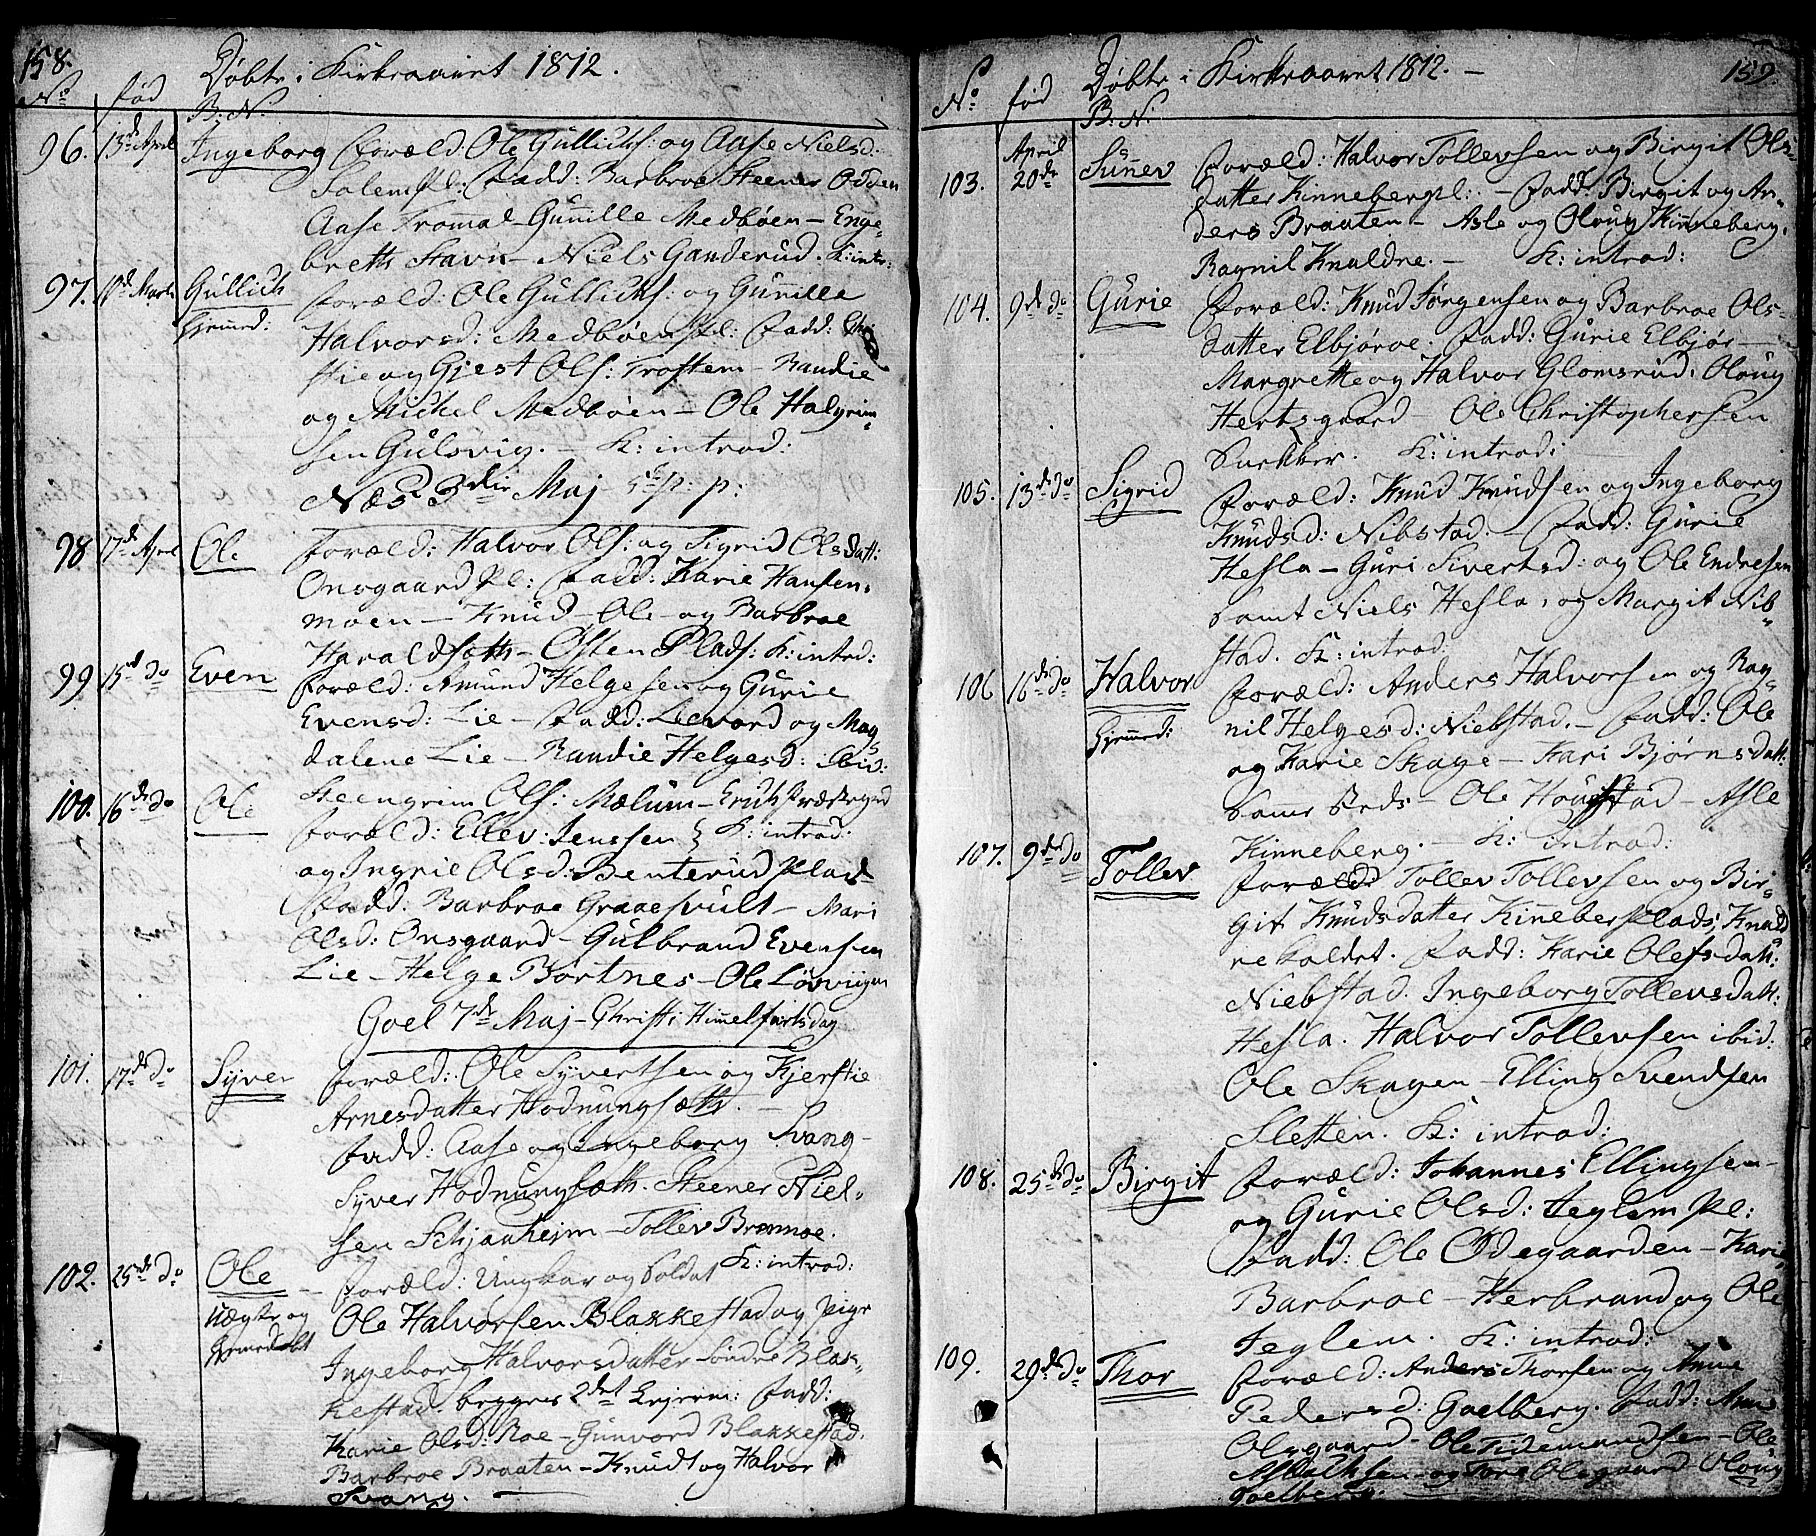 158.
Døbte i Kirkeaaret 1812.
No fød B: N.
96. 13de April Ingeborg Foræld: Ole Gullichs: og Aase Nielsd:
Fadd: Barbroe Steener Odden
Aase Trommal - Gunnille Medbøen - Enge-
breth Stavn - Niels Ganderud. K: intr:
97. Marti Gullich Foræld: Ole Gullichs: og Gunnille
hjemmed: Halvorsd: Medbøen pl: Fadd:
og Gjest Ols: Trostem - Randie
og Michel Medbøen - Ole Halgrim-
sen Gulsvig. - K: introd:
Næs 3die Maj 5te p: p:
98 17de April Ole Foræld: Halvor Ols: og Sigrid Olsdatt:
Onsgaard Pl: Fadd: Karie Hansen-
moen - Knud - Ole - og Barbroe
Haraldsæth - Østen Plads: K: introd:
99 15de do Even Foræld: Amund Helgesen og Gurie
Evensd: Lie - Fadd: Lievord og Mag-
dalene Lie - Randie Helgesd: ibid:
Steengrim Ols: Mælum - Erich Præstegrd
100. 16de do Ole Foræld: Ellev: Jenssen § K: introd:
og Ingrie Olsd: Benterud Plad
Fadd: Barbroe Graaesvult - Mari
Olsd: Onsgaard - Gulbrand Evensen
Lie - Helge Bortnes - Ole Løvviigen
Goel 7de Maj - Christi Himmelfartsdag
101. 17de do Syver Foræld: Ole Syvertsen og Kjerstie
Arnesdatter Hodnungsæth. -
Fadd: Aase og Ingeborg Svang -
Syver Hodnungsæth. Steener Niel-
sen Schjanheim - Tollev Brennoe.
K: introd:
102. 25de do Ole - Foræld: Ungkar og Soldat
Uægte og Ole Halvorsen Blakkestad og Pige
Ingeborg Halvorsdatter Søndre Blak-
kestad. begges 2det Lejerm: Fadd:
Karie Olsd: Roe - Gunvord Blakkestad.
Barbroe Braaten - Knudt og Halvor
Svang.
159.
Døbte i Kirkeaaret 1812. -
No fød B: N.
103. April 20de Sünnev Foræld: Halvor Tollevsen og Birgit Ols-
datter Kinneberg pl: - Fadd: Birgit og An-
ders Braaten - Asle og Oloug Kinneberg.
Ragnil Knaldre. - K: introd:
104. 9de do Gurie Foræld: Knud Jørgensen og Barbroe Ols-
datter Elbjøroe. Fadd: Gurie Elbjør -
Margrethe og Halvor Glomsrud. Oloug
Hertsgaard - Ole Christophersen
K: introd:
105. 13de do Sigrid Foræld: Knud Knudsen og Ingeborg
Knudsd: Nibstad. - Fadd: Gurie
Hesla - Guri Sivertsd: og Ole Endresen
samt Niels Hesla, og Margit Nib-
stad. K: introd:
106 16de do Halvor Foræld: Anders Halvorsen og Rag-
hjemmed: nil Helgesd: Niebstad. - Fadd: Ole
og Karie Skage - Kari Bjørnsdatt:
- Ole Hougstad - Asle
Kinneberg. - K: introd:
107. 9de do Tollev Foræld: Tollev Tollevsen og Bir-
git Knudsdatter Kinneber Plads; Knald
re kaldet. Fadd: Karie Olefsdatt:
Niebstad. Ingeborg Tollevsdatt:
Hesla. Halvor Tollevsen ibid:
Ole Skagen - Elling Svendsen
Sletten. K: introd:
108. 25de do Birgit Foræld: Johannes Ellingsen -
og Gurie Olsd: Jeglem Pl:
Fadd: Ole Ødegaarden - Karie
Barbroe - Herbrand og Ole
Jeglem. K: introd:
109. 29de do Thor Foræld: Anders Thorsen og Anne
Pedersd: Goelberg. Fadd: Anne
Olsgaard - Ole Tidemandsen - Ole
og Tore Olsgaard Oloug
Goelberg.